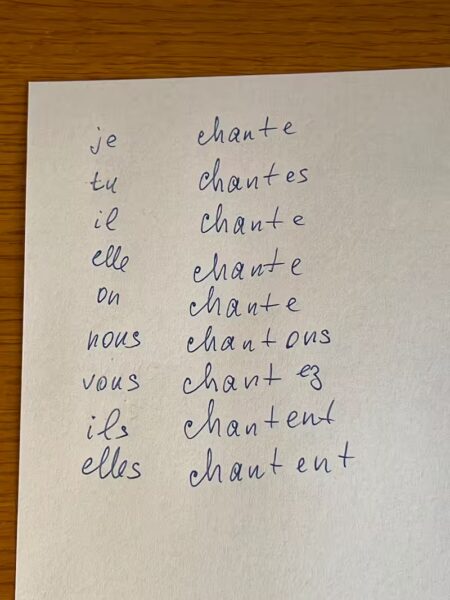 je chante
tu chantes
il chante
elle chante
on chante
nous chantons
vous chantez
ils chantent
elles chantent